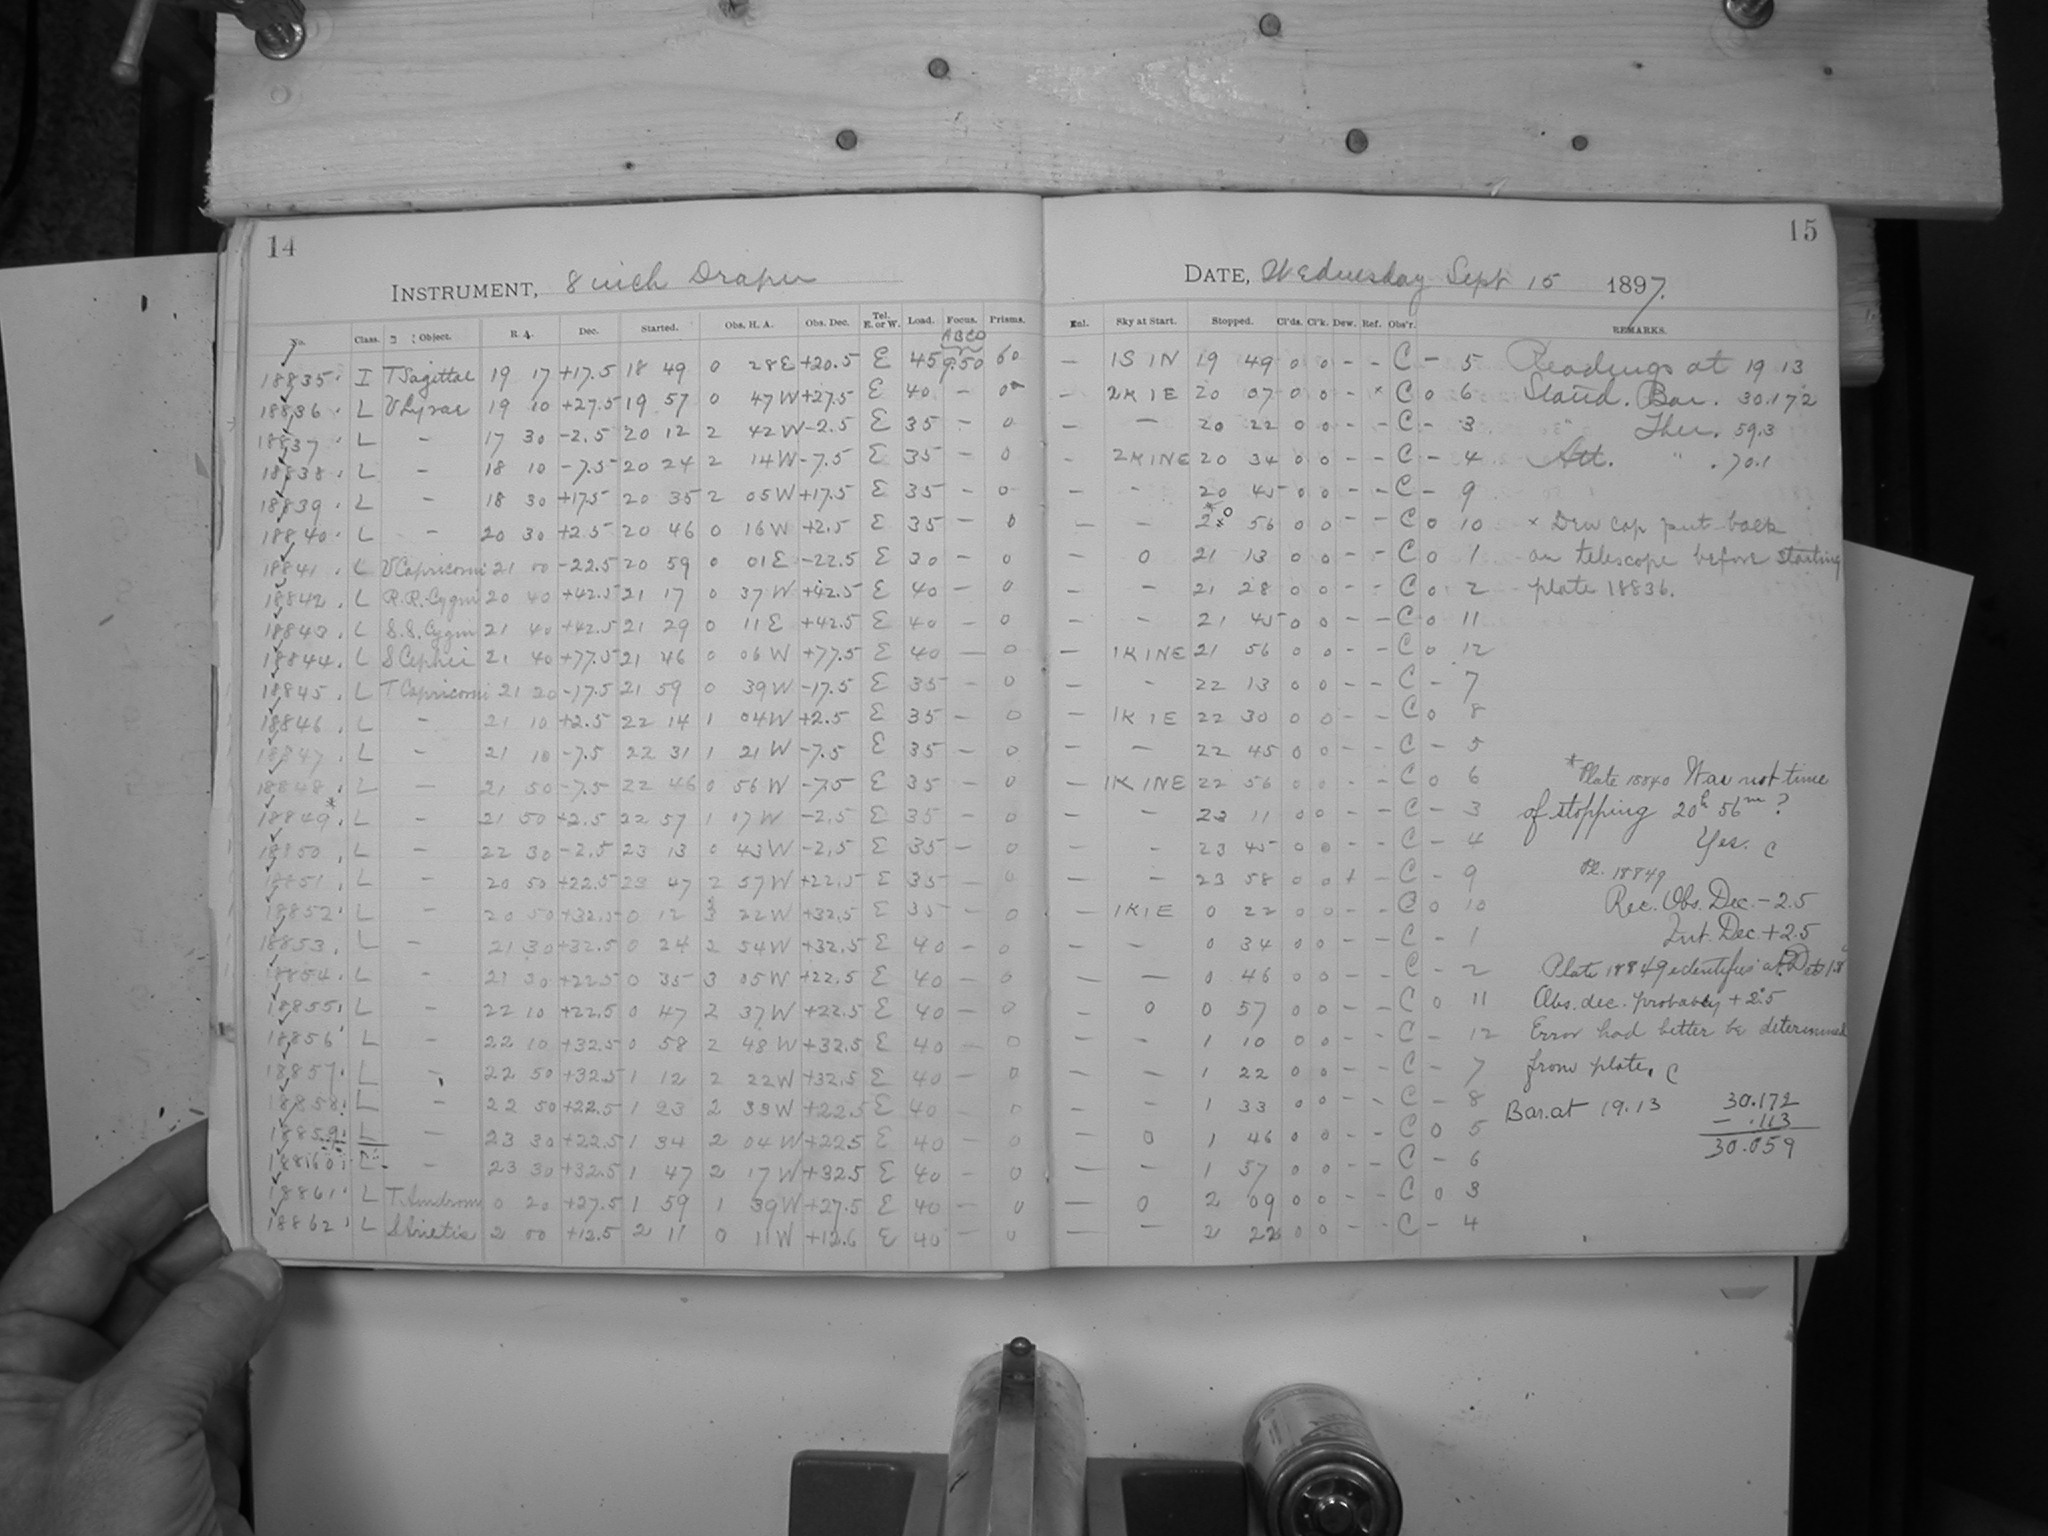 14
INSTRUMENT, 8 inch Draper
No. Class. Object. R A. Dec. Started. Obs. H. A. Obs. Dec. Tel. E. or W. Load. Focus. Prisms.
ABCD
18835. I T Sagittae 19 17 +17.5 18 49 0 28E +20.5 E 45 9.50 60
18836. L V Lyrae 19 10 +27.5 19 57 0 47W +27.5 E 40 - 0
18837. L - 17 30 -2.5 20 12 2 42W -2.5 E 35 - 0
18838. L - 18 10 -7.5 20 24 2 14W -7.5 E 35 - 0
18839. L - 18 30 +17.5 20 35 2 05W +17.5 E 35 - 0
18840. L - 20 30 +2.5 20 46 0 16W +2.5 E 35 - 0
18841. L V Capricorni 21 00 -22.5 20 59 0 01E -22.5 E 30 - 0
18842. L R.R. Cygni 20 40 +42.5 21 17 0 37W +42.5 E 40 - 0
18843. L S.S. Cygni 21 40 +42.5 21 29 0 11E +42.5 E 40 - 0
18844. L S Cephei 21 40 +77.5 21 46 0 06W +77.5 E 40 - 0
18845. L T Capricorni 21 20 -17.5 21 59 0 39W -17.5 E 35 - 0
18846. L - 21 10 +2.5 22 14 1 04W +2.5 E 35 - 0
18847. L - 21 10 -7.5 22 31 1 21W -7.5 E 35 - 0
18848. L - 21 50 -7.5 22 46 0 56W -7.5 E 35 - 0
18849.* L - 21 50 +2.5 22 57 1 17W -2.5 E 35 - 0
18850. L - 22 30 -2.5 23 13 0 43W -2.5 E 35 - 0
18851. L - 20 50 +22.5 23 47 2 57W +22.5 E 35 - 0
18852. L - 20 50 +32.5 0 12 3 22W +32.5 E 35 - 0
18853. L - 21 30 +32.5 0 24 2 54W +32.5 E 40 - 0
18854. L - 21 30 +22.5 0 35 3 05W +22.5 E 40 - 0
18855. L - 22 10 +22.5 0 47 2 37W +22.5 E 40 - 0
18856. L - 22 10 +32.5 0 58 2 48W +32.5 E 40 - 0
18857. L - 22 50 +32.5 1 12 2 22W +32.5 E 40 - 0
18858. L - 22 50 +22.5 1 23 2 33W +22.5 E 40 - 0
18859. L - 23 30 +22.5 1 34 2 04W +22.5 E 40 - 0
18860. L - 23 30 +32.5 1 47 2 17W +32.5 E 40 - 0
18861. L T. Androm 0 20 +27.5 1 59 1 39W +27.5 E 40 - 0
18862. L S Arietis 2 00 +12.5 2 11 0 11W +12.6 E 40 - 0
15
DATE, Wednesday Sept 15 1897.
Enl. Sky at Start. Stopped. Cl'ds. Cl'k. Dew. Ref. Obs'r. REMARKS.
- 1S1N 19 49 0 0 - - C - 5 Readings at 19 13
- 2K1E 20 07 0 0 - x C 0 6 Stand. Bar. 30.172
- - 20 22 0 0 - - C - 3 " Ther. 59.3
- 2K1NE 20 34 0 0 - - C - 4 Att. " 70.1
- - 20 45 0 0 - - C - 9
- - 20 56 0 0 - - C 0 10 x Dew cap put back
- 0 21 13 0 0 - - C 0 1 on telescope before starting
- - 21 28 0 0 - - C 0 2 plate 18836.
- - 21 45 0 0 - - C 0 11
- 1K1NE 21 56 0 0 - - C 0 12
- - 22 13 0 0 - - C - 7
- 1K1E 22 30 0 0 - - C 0 8
- - 22 45 0 0 - - C - 5
- 1K1NE 22 56 0 0 - - C 0 6 *Plate 18840 Was not time
- - 23 11 0 0 - - C - 3 of stopping 20h 56m?
- - 23 45 0 0 - - C - 4 Yes. C
- - 23 58 0 0 + - C - 9 Pl. 18849
- 1K1E 0 22 0 0 - - C 0 10 Rec. Obs. Dec. -2.5
- - 0 34 0 0 - - C - 1 Int. Dec. +2.5
- - 0 46 0 0 - - C - 2 Plate 18849 identifies at
- 0 0 57 0 0 - - C 0 11 Obs. dec. probably +2.5
- - 1 10 0 0 - - C - 12 Error had better be determined
- - 1 22 0 0 - - C - 7 from plate. C
- - 1 33 0 0 - - C - 8 Bar. at 19.13 30.172
- 0 1 46 0 0 - - C 0 5 - .113
- - 1 57 0 0 - - C - 6 30.059
- 0 2 09 0 0 - - C 0 3
- - 2 22 0 0 - - C - 4